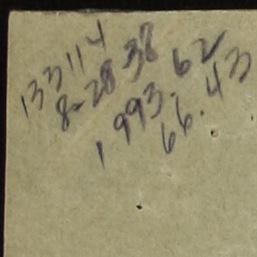 133114
8-28-38
1993.62
66.43